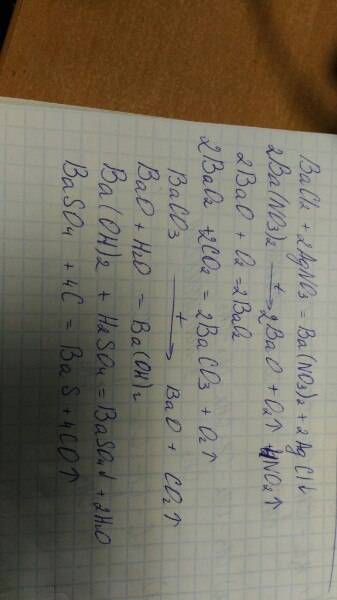 BaCl2 + 2AgNO3 = Ba(NO3)2 + 2AgCl↓
2Ba(NO3)2 —t→ 2BaO + O2↑ 4NO2↑
2BaO + O2 = 2BaO2
2BaO2 + 2CO2 = 2BaCO3 + O2↑
BaCO3 —t→ BaO + CO2↑
BaO + H2O = Ba(OH)2
Ba(OH)2 + H2SO4 = BaSO4↓ + 2H2O
BaSO4 + 4C = BaS + 4CO↑